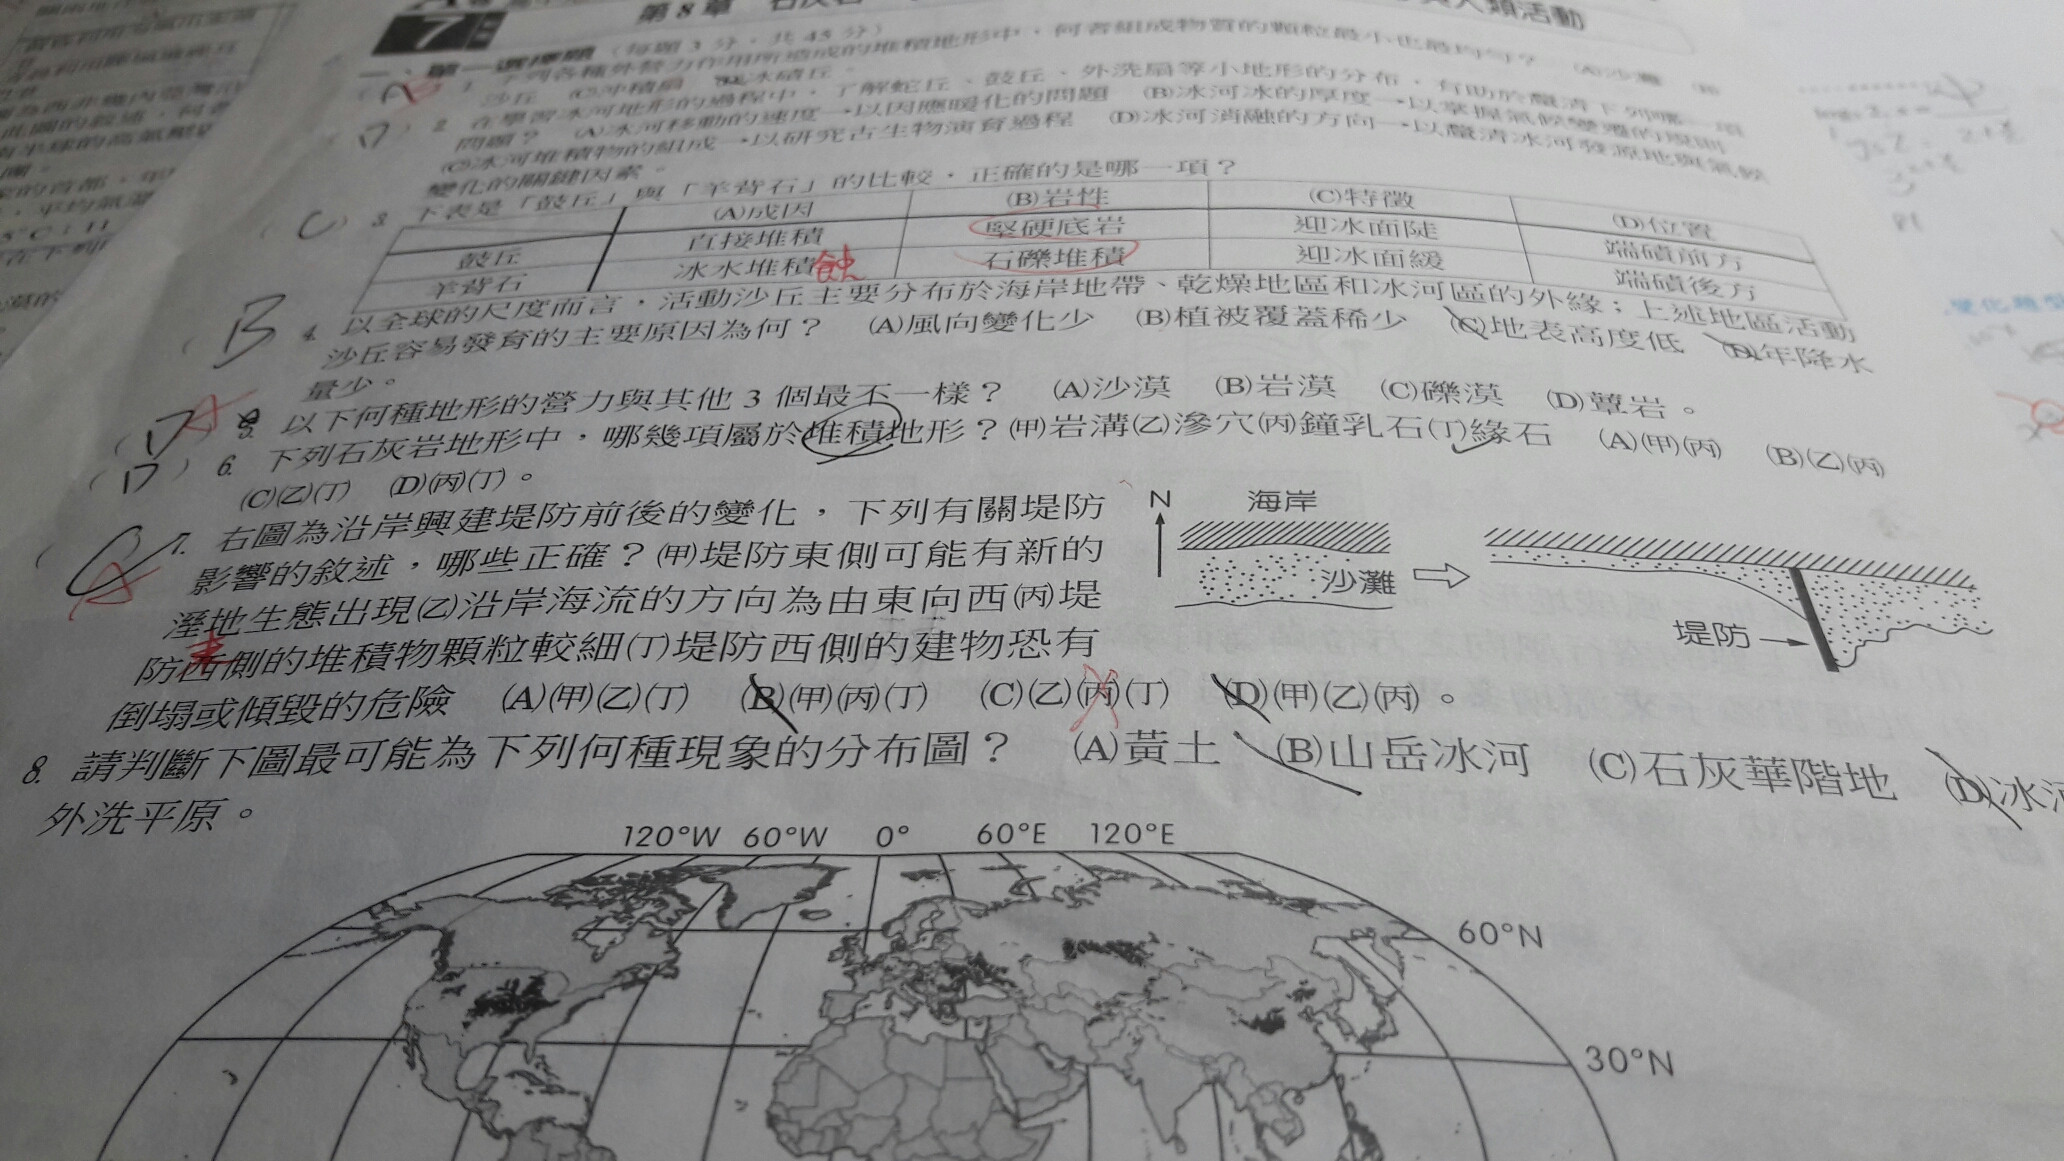 7
第8章
人類活動
一、單一選擇題（每題3分，共45分）
A B 1. 下列各種外營力作用所造成的堆積地形中，何者組成物質的顆粒最小也最均勻？ (A)沙灘 (B)
沙丘 (C)沖積扇 (D)冰磧丘。
(D) 2. 在學習冰河地形的過程中，了解蛇丘、鼓丘、外洗扇等小地形的分布，有助於釐清下列哪一項
問題？ (A)冰河移動的速度→以因應暖化的問題 (B)冰河冰的厚度→以掌握氣候變遷的規則
(C)冰河堆積物的組成→以研究古生物演育過程 (D)冰河消融的方向→以釐清冰河發源地與氣候
變化的關鍵因素。
(C) 3. 下表是「鼓丘」與「羊背石」的比較，正確的是哪一項？
(A)成因 (B)岩性 (C)特徵 (D)位置
鼓丘 直接堆積 堅硬底岩 迎冰面陡 端磧前方
羊背石 冰水堆積 蝕 石礫堆積 迎冰面緩 端磧後方
(B 4. 以全球的尺度而言，活動沙丘主要分布於海岸地帶、乾燥地區和冰河區的外緣；上述地區活動
沙丘容易發育的主要原因為何？ (A)風向變化少 (B)植被覆蓋稀少 (C)地表高度低 (D)年降水
量少。
(D A 5. 以下何種地形的營力與其他3個最不一樣？ (A)沙漠 (B)岩漠 (C)礫漠 (D)蕈岩。
(D) 6. 下列石灰岩地形中，哪幾項屬於堆積地形？(甲)岩溝(乙)滲穴(丙)鐘乳石(丁)緣石 (A)(甲)(丙) (B)(乙)(丙)
(C)(乙)(丁) (D)(丙)(丁)。
(C A 7. 右圖為沿岸興建堤防前後的變化，下列有關堤防
影響的敘述，哪些正確？(甲)堤防東側可能有新的
溼地生態出現(乙)沿岸海流的方向為由東向西(丙)堤
防西側的堆積物顆粒較細(丁)堤防西側的建物恐有
倒塌或傾毀的危險 (A)(甲)(乙)(丁) (B)(甲)(丙)(丁) (C)(乙)(丙)(丁) (D)(甲)(乙)(丙)。
N
海岸
沙灘
堤防
8. 請判斷下圖最可能為下列何種現象的分布圖？ (A)黃土 (B)山岳冰河 (C)石灰華階地 (D)冰河
外洗平原。
120°W 60°W 0° 60°E 120°E
60°N
30°N